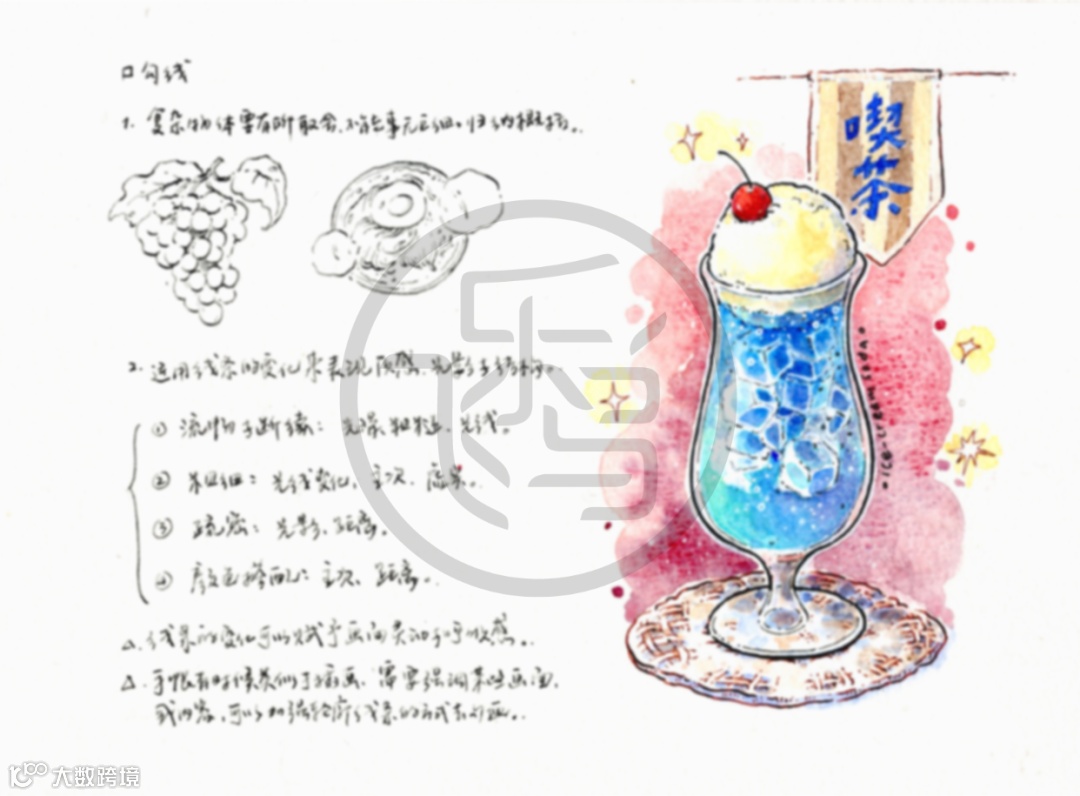 口 勾线
1. 复杂物体要有所取舍,不能事无巨细。归纳概括。
2. 运用线条的变化来表现质感、光影与结构。
① 流畅与断续:光影、光线。
② 粗细:光线变化、主次、虚实。
③ 疏密:光影、距离。
④ 颜色搭配:主次、距离。
△. 线条的变化可以赋予画面灵动和呼吸感。
△. 手帐有时候类似于插画,需要强调某些画面
或内容,可以加强轮廓线条的方式来处理。
喫茶
大数跨境